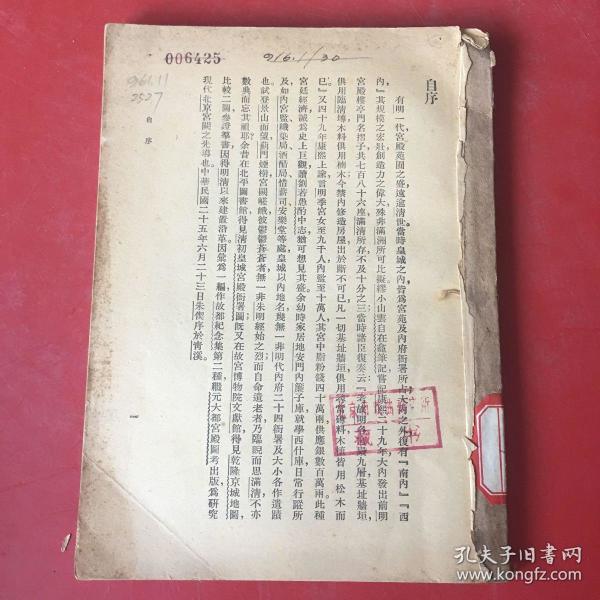 006425
916.1/30
961.11
2527
自序
自序
有明一代宮殿苑囿之盛遠逾清世當時皇城之內皆爲宮苑及內府衙署所占大內之外復有『南內』『西
內』其規模之宏壯創造力之偉大殊非滿洲所可比擬繆小山雲自在龕筆記嘗記康熙二十九年大內發出前明
宮殿樓亭門名摺子共七百八十六座滿清所存不及十分之三當時諸臣復奏云『考故明各宮殿九層基址牆垣
俱用臨清磚木料俱用楠木今禁內修造房屋出於斷不可已凡一切基址牆垣俱用尋常磚料木植皆用松木而
已』又四十九年康熙上諭言明季宮女至九千人內監至十萬人其宮中脂粉錢四十萬兩供應銀數百萬兩此種
宮廷經濟誠爲史上巨觀讀劉若愚酌中志猶可想見其盛余幼時家居地安門內簾子庫就學西什庫日常行蹤所
及如內宮監織染局酒醋局惜薪司安樂堂等處皇城以內地名幾無一非明代內府二十四衙署及大小各作遺蹟
也試登景山而望薊門煙樹宮闕嵯峨彼鬱鬱蒼蒼者無一非朱明經始之烈而自命遺老者乃臨睨而思滿清不亦
數典而忘其祖耶余昔在北平圖書館得見清初皇城宮殿衙署圖既又在故宮博物院文獻館得見乾隆京城地圖
比較二圖參證羣書因得明清以來建置沿革因彙爲一編作故都紀念集第二種繼元大都宮殿圖考出版爲研究
現代北京宮闕之先導也中華民國二十五年六月二十三日朱偰序於靑溪
孔夫子旧书网
www.kongfz.com